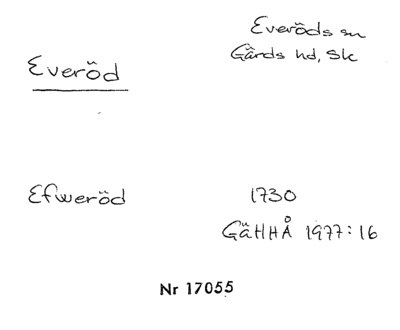 Everöds sn
Gärds hd, Sk
Everöd
Efweröd 1730
GäHHÅ 1977:16
Nr 17055